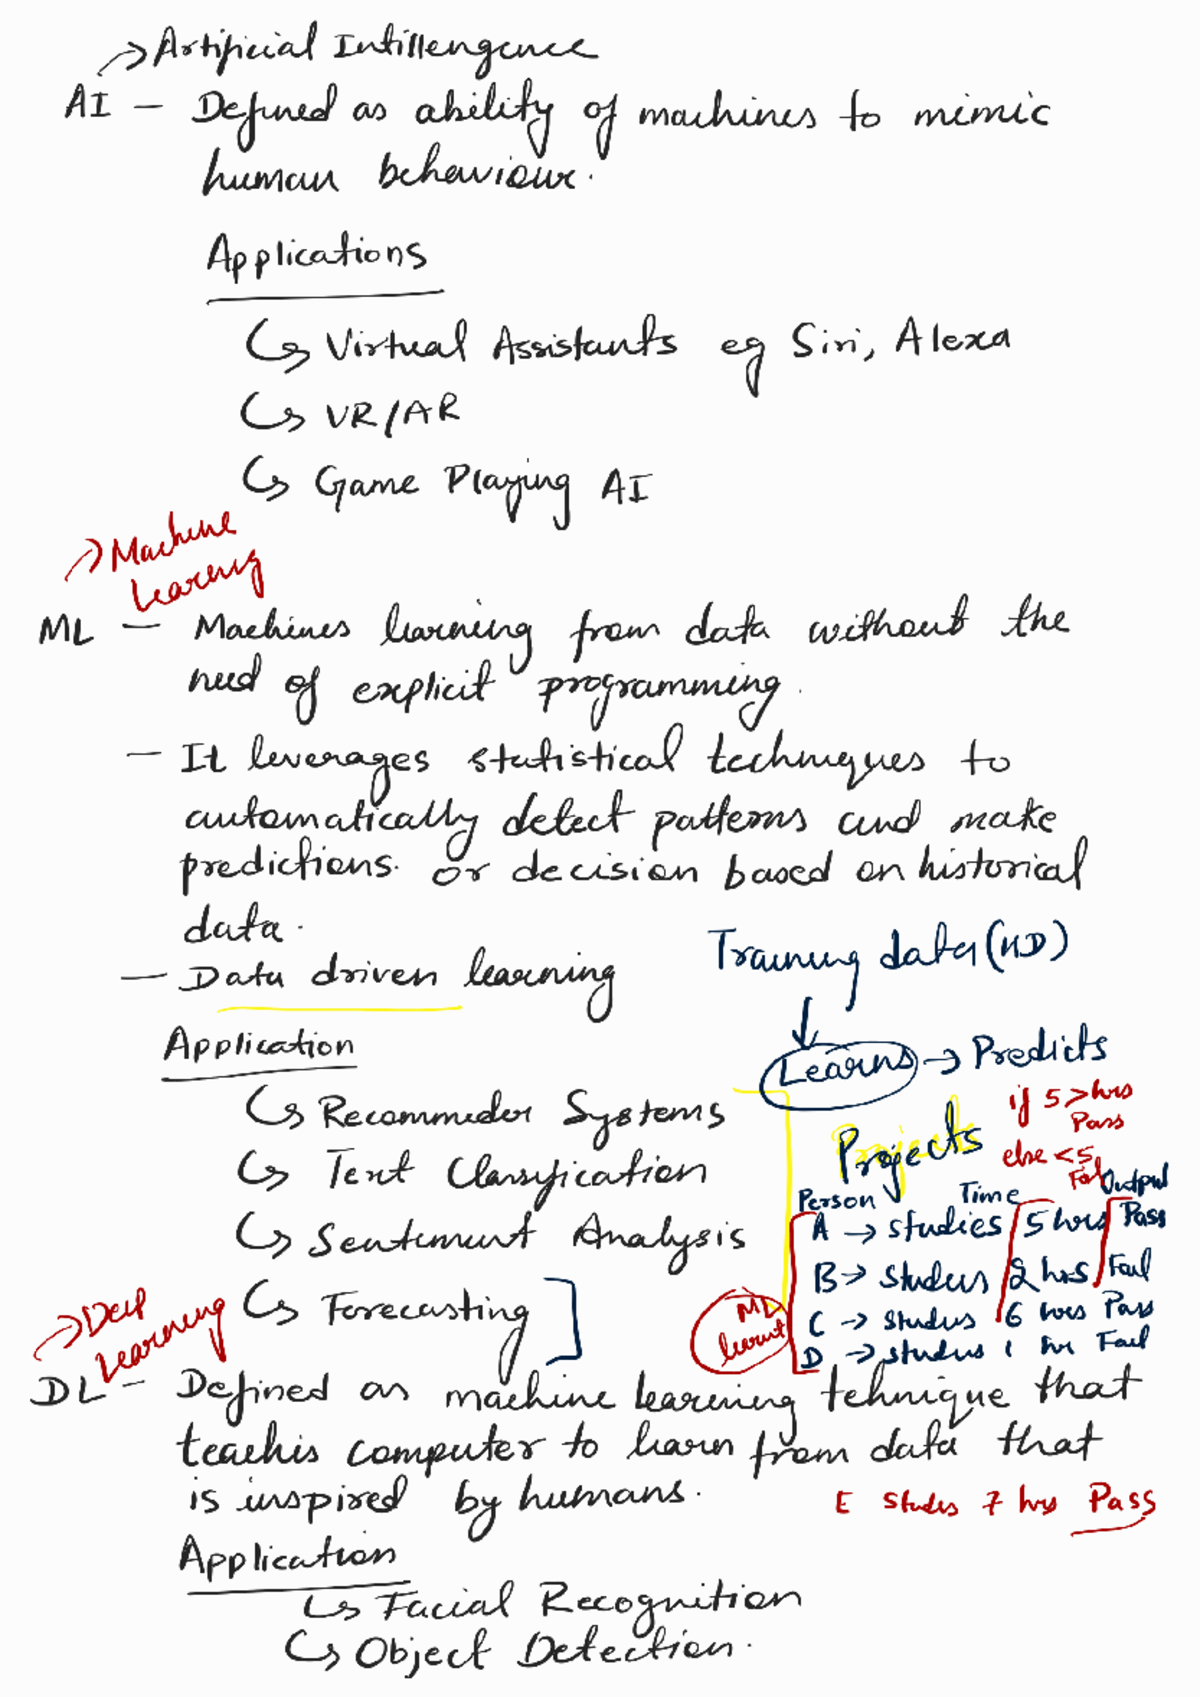 → Artificial Intillengence
AI – Defined as ability of machines to mimic
human behaviour.
Applications
↳ Virtual Assistants eg Siri, Alexa
↳ VR/AR
↳ Game Playing AI
→ Machine
Learning
ML – Machines learning from data without the
need of explicit programming.
– It leverages statistical techniques to
automatically detect patterns and make
predictions. or decision based on historical
data.
– Data driven learning
Training data (HD)
↓
Learns → Predicts
Application
↳ Recommeder Systems
↳ Text Classification
↳ Sentiment Analysis
↳ Forecasting
if 5 > hrs
Pass
else < 5
Fail
Projects
Person Time Output
A → studies 5 hrs Pass
B → studies 2 hrs Fail
C → studies 6 hrs Pass
D → studies 1 hr Fail
ML
learnt
→ Deep
Learning
DL – Defined as machine learning tehnique that
teachis computer to learn from data that
is inspired by humans.
E studies 7 hrs Pass
Application
↳ Facial Recognition
↳ Object Detection.